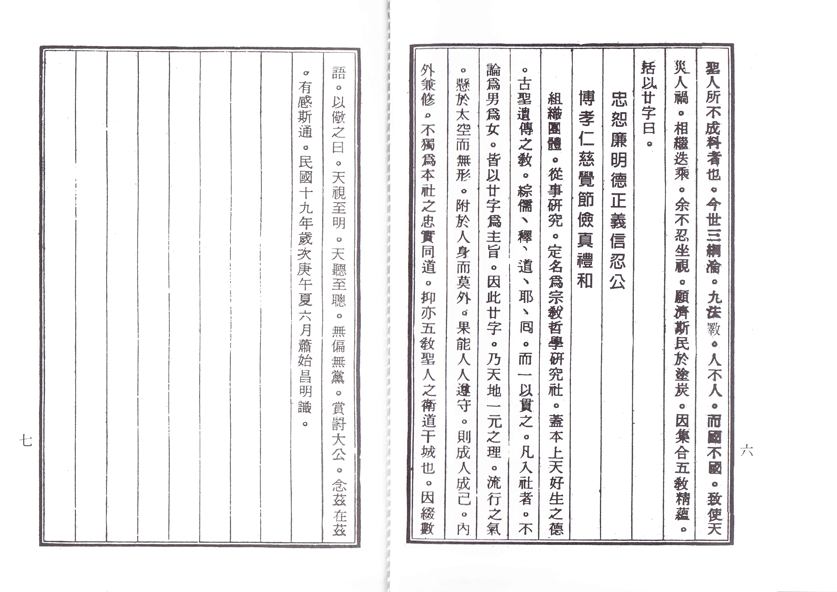 聖人所不成科者也。今世三綱淪。九法斁。人不人。而國不國。致使天
災人禍。相繼迭乘。余不忍坐視。願濟斯民於塗炭。因集合五敎精蘊。
括以廿字曰。
忠恕廉明德正義信忍公
博孝仁慈覺節儉真禮和
組織團體。從事硏究。定名爲宗敎哲學硏究社。蓋本上天好生之德
。古聖遺傳之敎。綜儒、釋、道、耶、回。而一以貫之。凡入社者。不
論爲男爲女。皆以廿字爲主旨。因此廿字。乃天地一元之理。流行之氣
。懸於太空而無形。附於人身而莫外。果能人人遵守。則成人成己。內
外兼修。不獨爲本社之忠實同道。抑亦五敎聖人之衛道干城也。因綴數
六
語。以儆之曰。天視至明。天聽至聰。無偏無黨。賞罸大公。念茲在茲
。有感斯通。民國十九年歲次庚午夏六月蕭始昌明識。
七